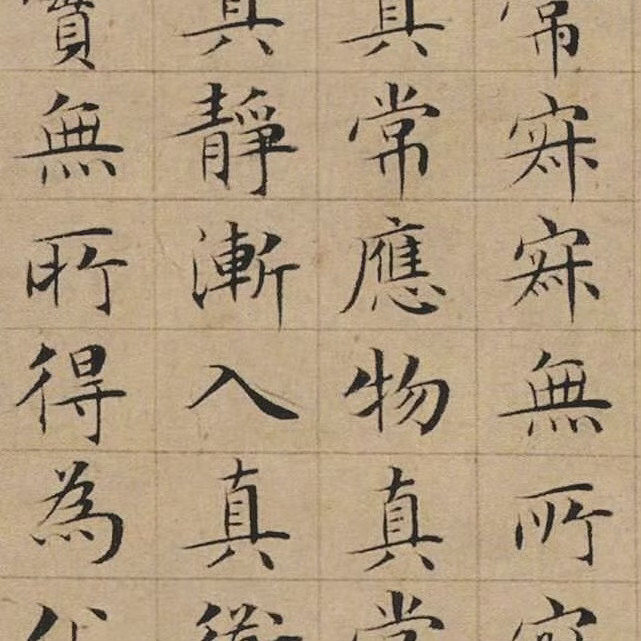 常寂寂無所寂
真常應物真常
真靜漸入真衜
實無所得為化